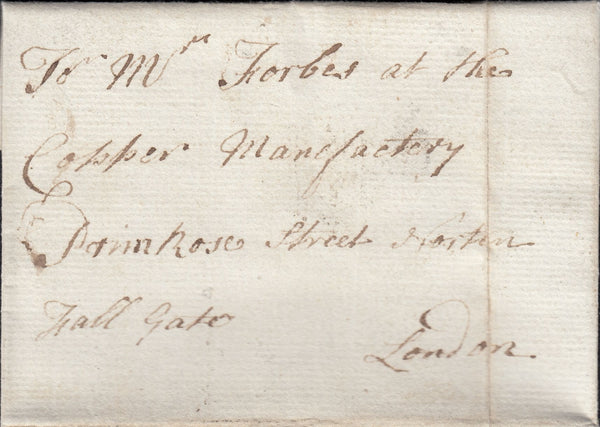 To Mrs Forbes at the
Copper Manefactery
Primrose Street Norten
Fall Gate
London